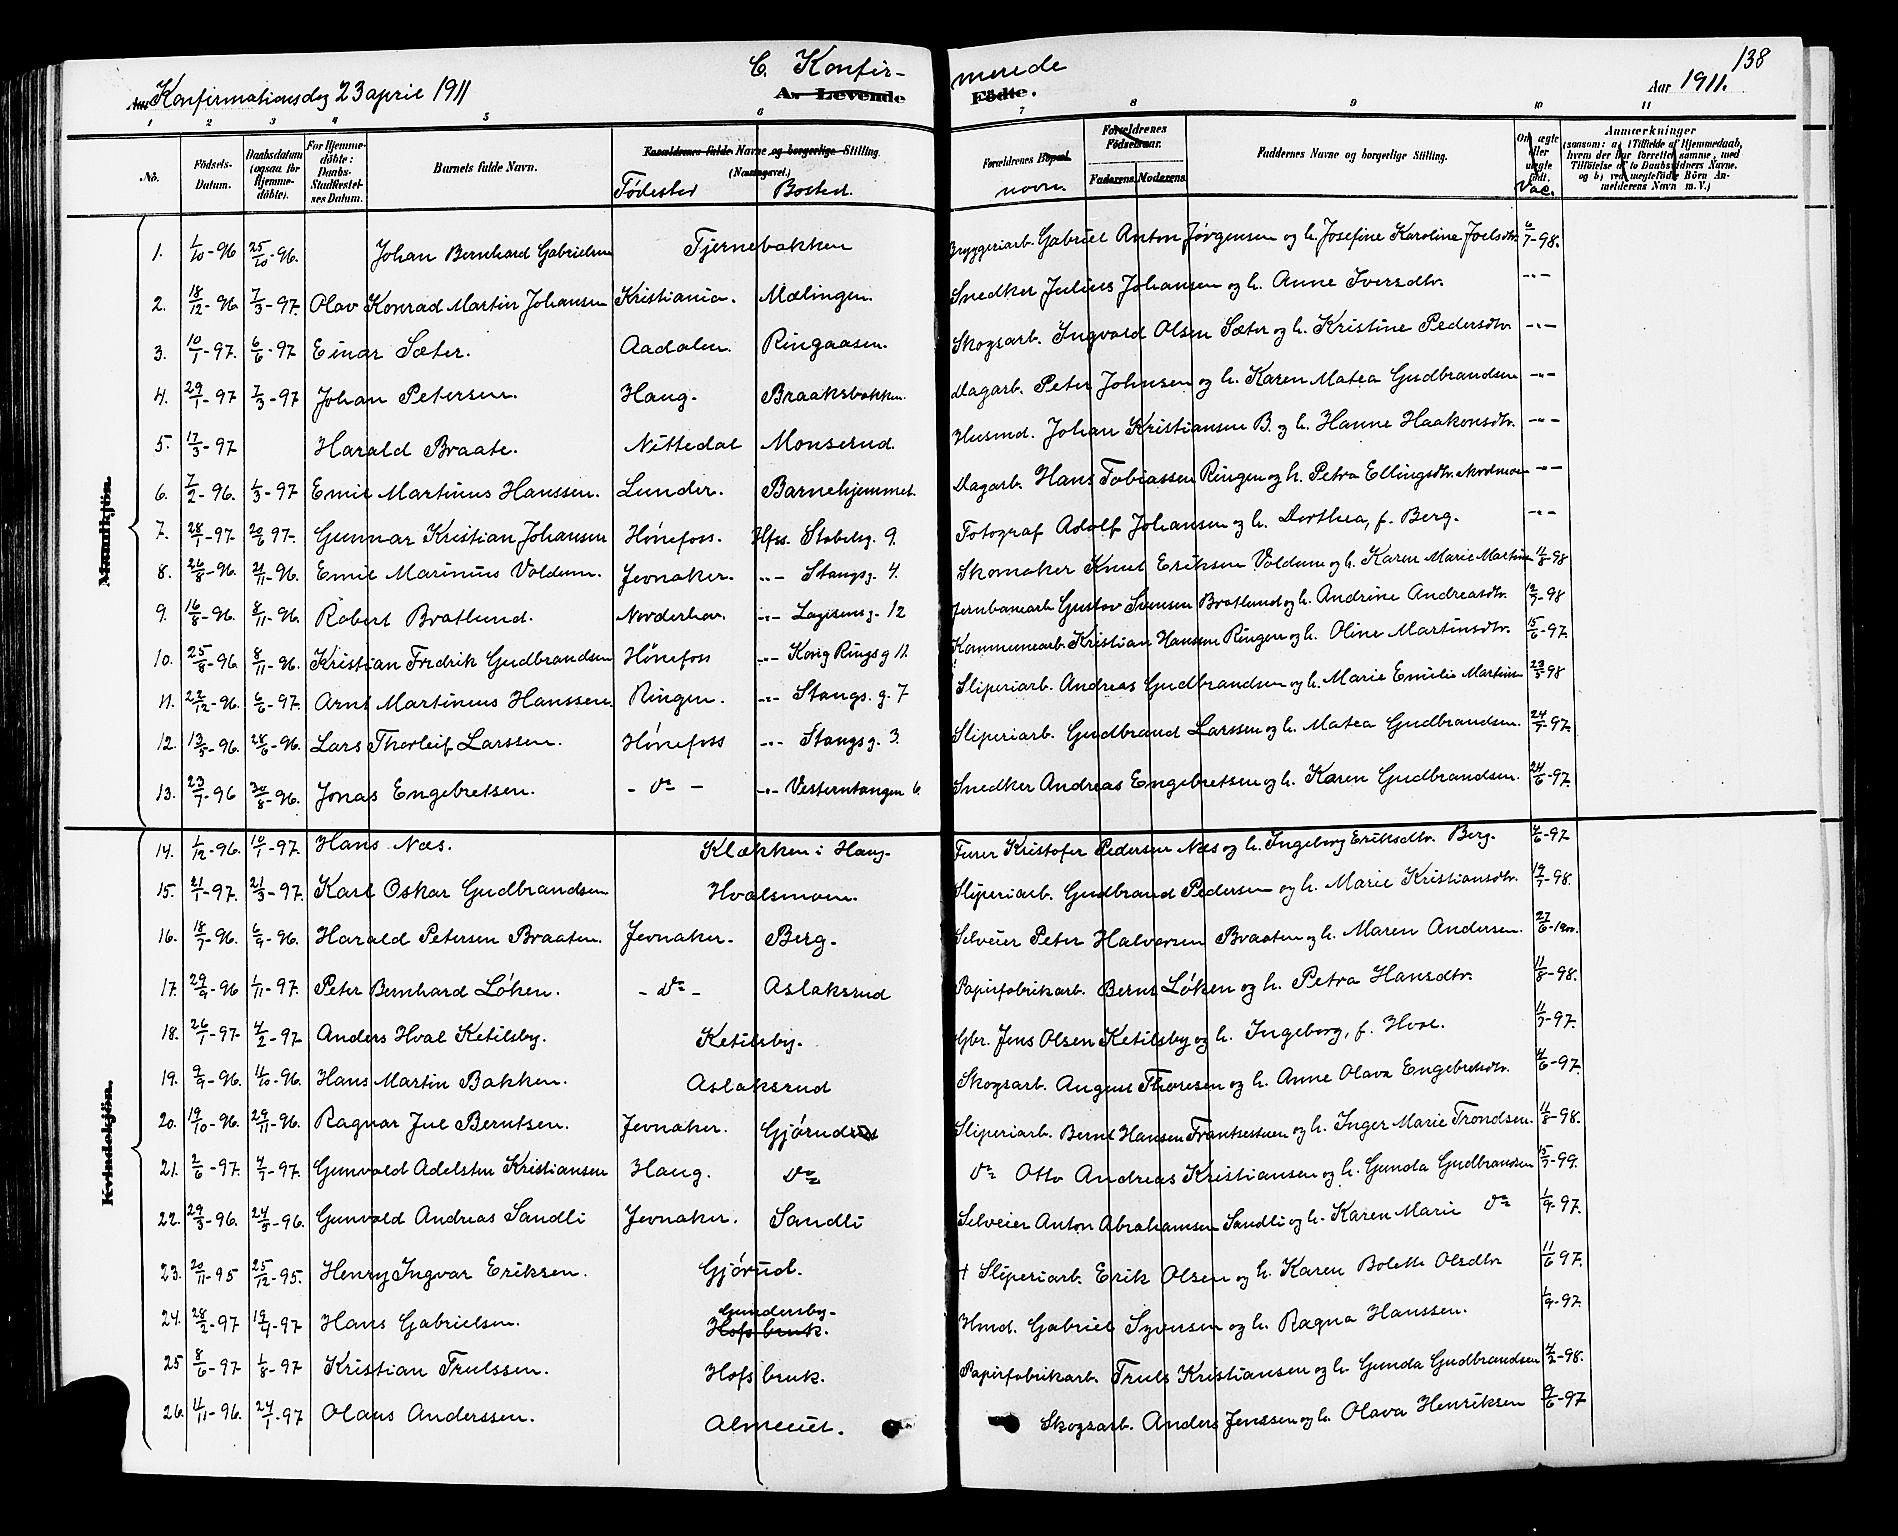 138
C. Konfir- merede
Konfirmationsdag 23 april 1911
A. Levende Födte.
Aar 1911.
1 2 3 4 5 6 7 8 9 10 11
No. Födsels-Datum. Daabsdatum (ogsaa for Hjemmedöbte). For Hjemmedöbte: Daabs-Stadfæstelses Datum. Barnets fulde Navn. Forældrenes fulde Navne og borgerlige Stilling. (Næringsvei.) Fødested Bosted. Forældrenes Bopæl. navn Forældrenes Födselsaar. Faderens. Moderens. Faddernes Navne og borgerlige Stilling. Om ægte eller uægte födt. Vac. Anmærkninger (saasom: a) i Tilfælde af Hjemmedaab, hvem der har forrettet samme, med Tilföielse af to Daabsvidners Navne, og b) ved uægtefödte Börn Anmelderens Navn m. V.)
Mandkjön.
1. 1/10-96 25/10-96. Johan Bernhard Gabrielsen Tjernebakken Bryggeriarb. Gabriel Anton Jørgensen og h. Josefine Karoline Joelsdtr. 6/7-98.
2. 18/12-96. 7/3-97. Olav Konrad Martin Johansen Kristiania. Mælingen. Snedker Julius Johansen og h. Anne Iversdtr. -"-
3. 10/1-97. 6/6-97 Einar Sæter. Aadalen. Ringaasen. Skogsarb. Ingvald Olsen Sæter og h. Kristine Pedersdtr. -"-
4. 29/1-97 7/3-97 Johan Petersen. Haug. Braaksbakken. Dagarb. Peter Johnsen og h. Karen Matea Gudbrandsen -"-
5. 17/3-97 Harald Braate. Nittedal Monserud. Husmd. Johan Kristiansen B. og h. Hanne Haakonsdtr. -"-
6. 7/2-96. 1/3-97 Emil Martinus Hanssen. Lunder. Barnehjemmet. Dagarb. Hans Tobiassen Ringen og h. Petra Ellingsdtr. -"-
7. 28/1-97. 20/6 97. Gunnar Kristian Johansen Hønefoss. Hfss. Stabelsg. 9. Fotograf Adolf Johansen og h. Dorthea, f. Berg. -"-
8. 26/8-96. 21/11-96. Emil Marinius Voldum. Jevnaker. -"- Stangsg. 4. Skomaker Knut Eriksen Voldum og h. Karen Marie Martins 11/8-98
9. 16/8-96. 8/11-96. Robert Bratlund. Norderhov. -"- g. 12 Jernbanearb. Gustav Svensen Bratlund og h. Andrine Andreasdtr. 12/7-98
10. 25/8-96. 8/11-96. Kristian Fredrik Gudbrandsen Hønefoss -"- Kong Rings g 11. Kommunearb. Kristian Hanssen Ringen og h. Oline Martinsdtr. 15/6-97.
11. 22/12-96. 6/6-97. Arnt Martinius Hanssen. Ringen. -"- Stangs. g. 7 Sliperiarb. Andreas Gudbrandsen og h. Marie Emilie Martins 23/5 98
12. 13/5-96. 28/6-96. Lars Thorleif Larssen. Hønefoss -"- Stangs g. 3. Sliperiarb. Gudbrand Larssen og h. Matea Gudbrandsen. 24/5-97.
13. 23/7-96 30/8-96. Jonas Engebretsen. - do - -"- Vesterntangen 6. Snedker Andreas Engebretsen og h. Karen Gudbrandsen. 24/6-97.
Kvindekjön.
14. 1/12-96. 10/1-97. Hans Næs. Klækken i Haug. Furer Kristofer Pedersen Næs og h. Ingeborg Eriksdtr. Berg. 4/6-97
15. 21/1-97. 21/3-97. Karl Oskar Gudbrandsen Hvalsmoen. Sliperiarb. Gudbrand Pedersen og h. Marie Kristiansdtr. 12/7-98.
16. 18/7-96. 6/9-96. Harald Petersen Braaten. Jevnaker. Berg. Selveier Peter Halvorsen Braaten og h. Maren Andersen. 27/6-1900.
17. 29/9-96 1/11-97. Peter Bernhard Løken. - do - Aslaksrud Papirfabrikarb. Bernt Løken og h. Petra Hansdtr. 11/8-98.
18. 26/1-97. 4/2-97. Anders Hval Ketilsby. Ketilsby. Gbr. Jens Olsen Ketilsby og h. Ingeborg, f. Hval. 11/7-97.
19. 9/9-96. 11/10-96. Hans Martin Bakken. Aslaksrud Skogsarb. August Thoresen og h. Anne Olava Engebretsdtr. 4/6-97.
20. 19/10-96. 29/11-96. Ragnar Jul Berntsen. Jevnaker. Gjørud Sliperiarb. Bernt Hansen Frantsestuen og h. Inger Marie Trondsen. 11/8-98.
21. 2/6-97. 4/7-97. Gunvald Adelsten Kristiansen Haug. do do Otto Andreas Kristiansen og h. Gunda Gudbrandsen 15/7-99.
22. 29/3-96. 24/5-96. Gunvald Andreas Sandli Jevnaker. Sandli Selveier Anton Abrahamsen Sandli og h. Karen Marie do 1/9-97.
23. 20/11-95 25/12-95. Henry Ingvar Eriksen. Gjørud. + Sliperiarb. Erik Olsen og h. Karen Bolette Olsdtr 11/6 97.
24. 28/2-97 19/4-97 Hans Gabrielsen. Gundersby. Hofs bruk. Hmd. Gabriel Syversen og h. Ragna Hanssen. 1/9-97.
25 8/6-97 1/8-97 Kristian Trulssen. Hofs bruk. Papirfabrikarb. Truls Kristiansen og h. Gunda Gudbrandsen 4/2-98.
26. 11/11-96. 24/1-97 Olaus Anderssen. Almeeiet. Skogsarb. Anders Jenssen og h. Olava Henriksen 9/6-97